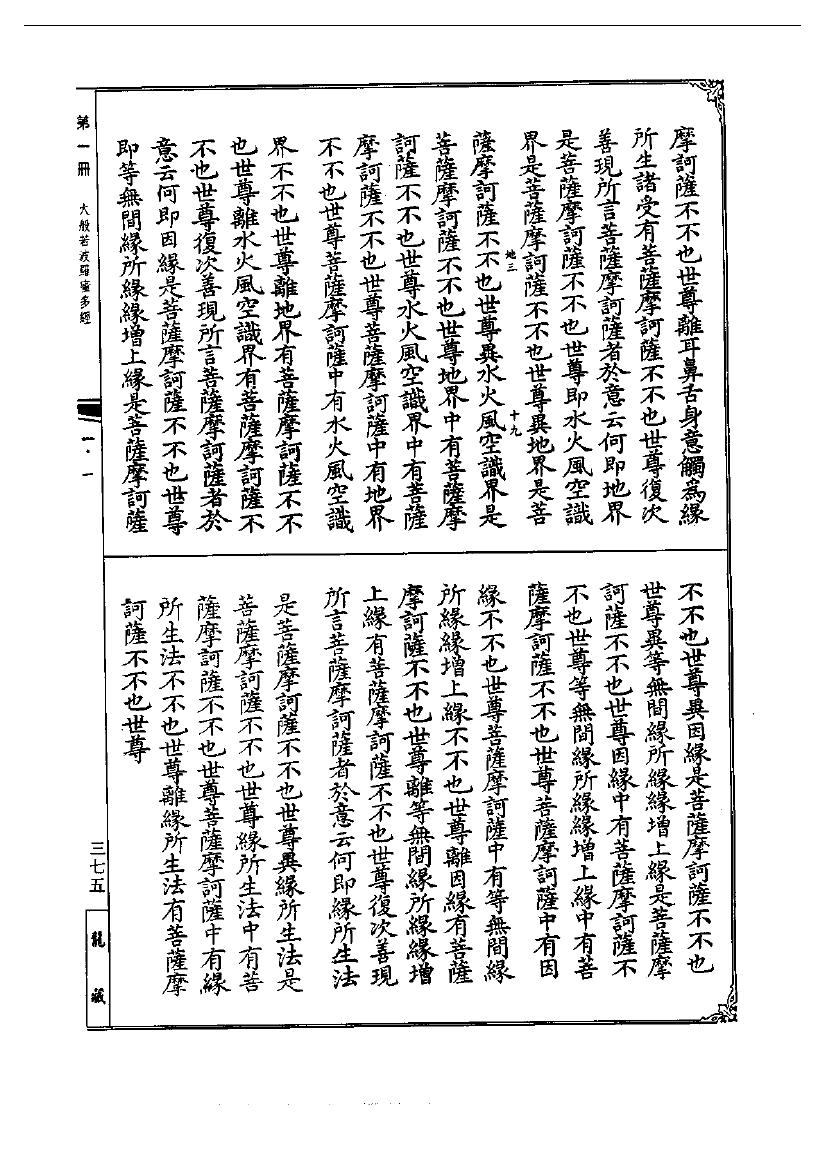 摩訶薩不不也世尊離耳鼻舌身意觸爲緣
所生諸受有菩薩摩訶薩不不也世尊復次
善現所言菩薩摩訶薩者於意云何即地界
是菩薩摩訶薩不不也世尊即水火風空識
界是菩薩摩訶薩不不也世尊異地界是菩
地三
十九
薩摩訶薩不不也世尊異水火風空識界是
菩薩摩訶薩不不也世尊地界中有菩薩摩
訶薩不不也世尊水火風空識界中有菩薩
摩訶薩不不也世尊菩薩摩訶薩中有地界
不不也世尊菩薩摩訶薩中有水火風空識
界不不也世尊離地界有菩薩摩訶薩不不
也世尊離水火風空識界有菩薩摩訶薩不
不也世尊復次善現所言菩薩摩訶薩者於
意云何即因緣是菩薩摩訶薩不不也世尊
即等無間緣所緣緣增上緣是菩薩摩訶薩
不不也世尊異因緣是菩薩摩訶薩不不也
世尊異等無間緣所緣緣增上緣是菩薩摩
訶薩不不也世尊因緣中有菩薩摩訶薩不
不也世尊等無間緣所緣緣增上緣中有菩
薩摩訶薩不不也世尊菩薩摩訶薩中有因
緣不不也世尊菩薩摩訶薩中有等無間緣
所緣緣增上緣不不也世尊離因緣有菩薩
摩訶薩不不也世尊離等無間緣所緣緣增
上緣有菩薩摩訶薩不不也世尊復次善現
所言菩薩摩訶薩者於意云何即緣所生法
是菩薩摩訶薩不不也世尊異緣所生法是
菩薩摩訶薩不不也世尊緣所生法中有菩
薩摩訶薩不不也世尊菩薩摩訶薩中有緣
所生法不不也世尊離緣所生法有菩薩摩
訶薩不不也世尊
第一冊 大般若波羅蜜多經
一·一
三七五
龍藏